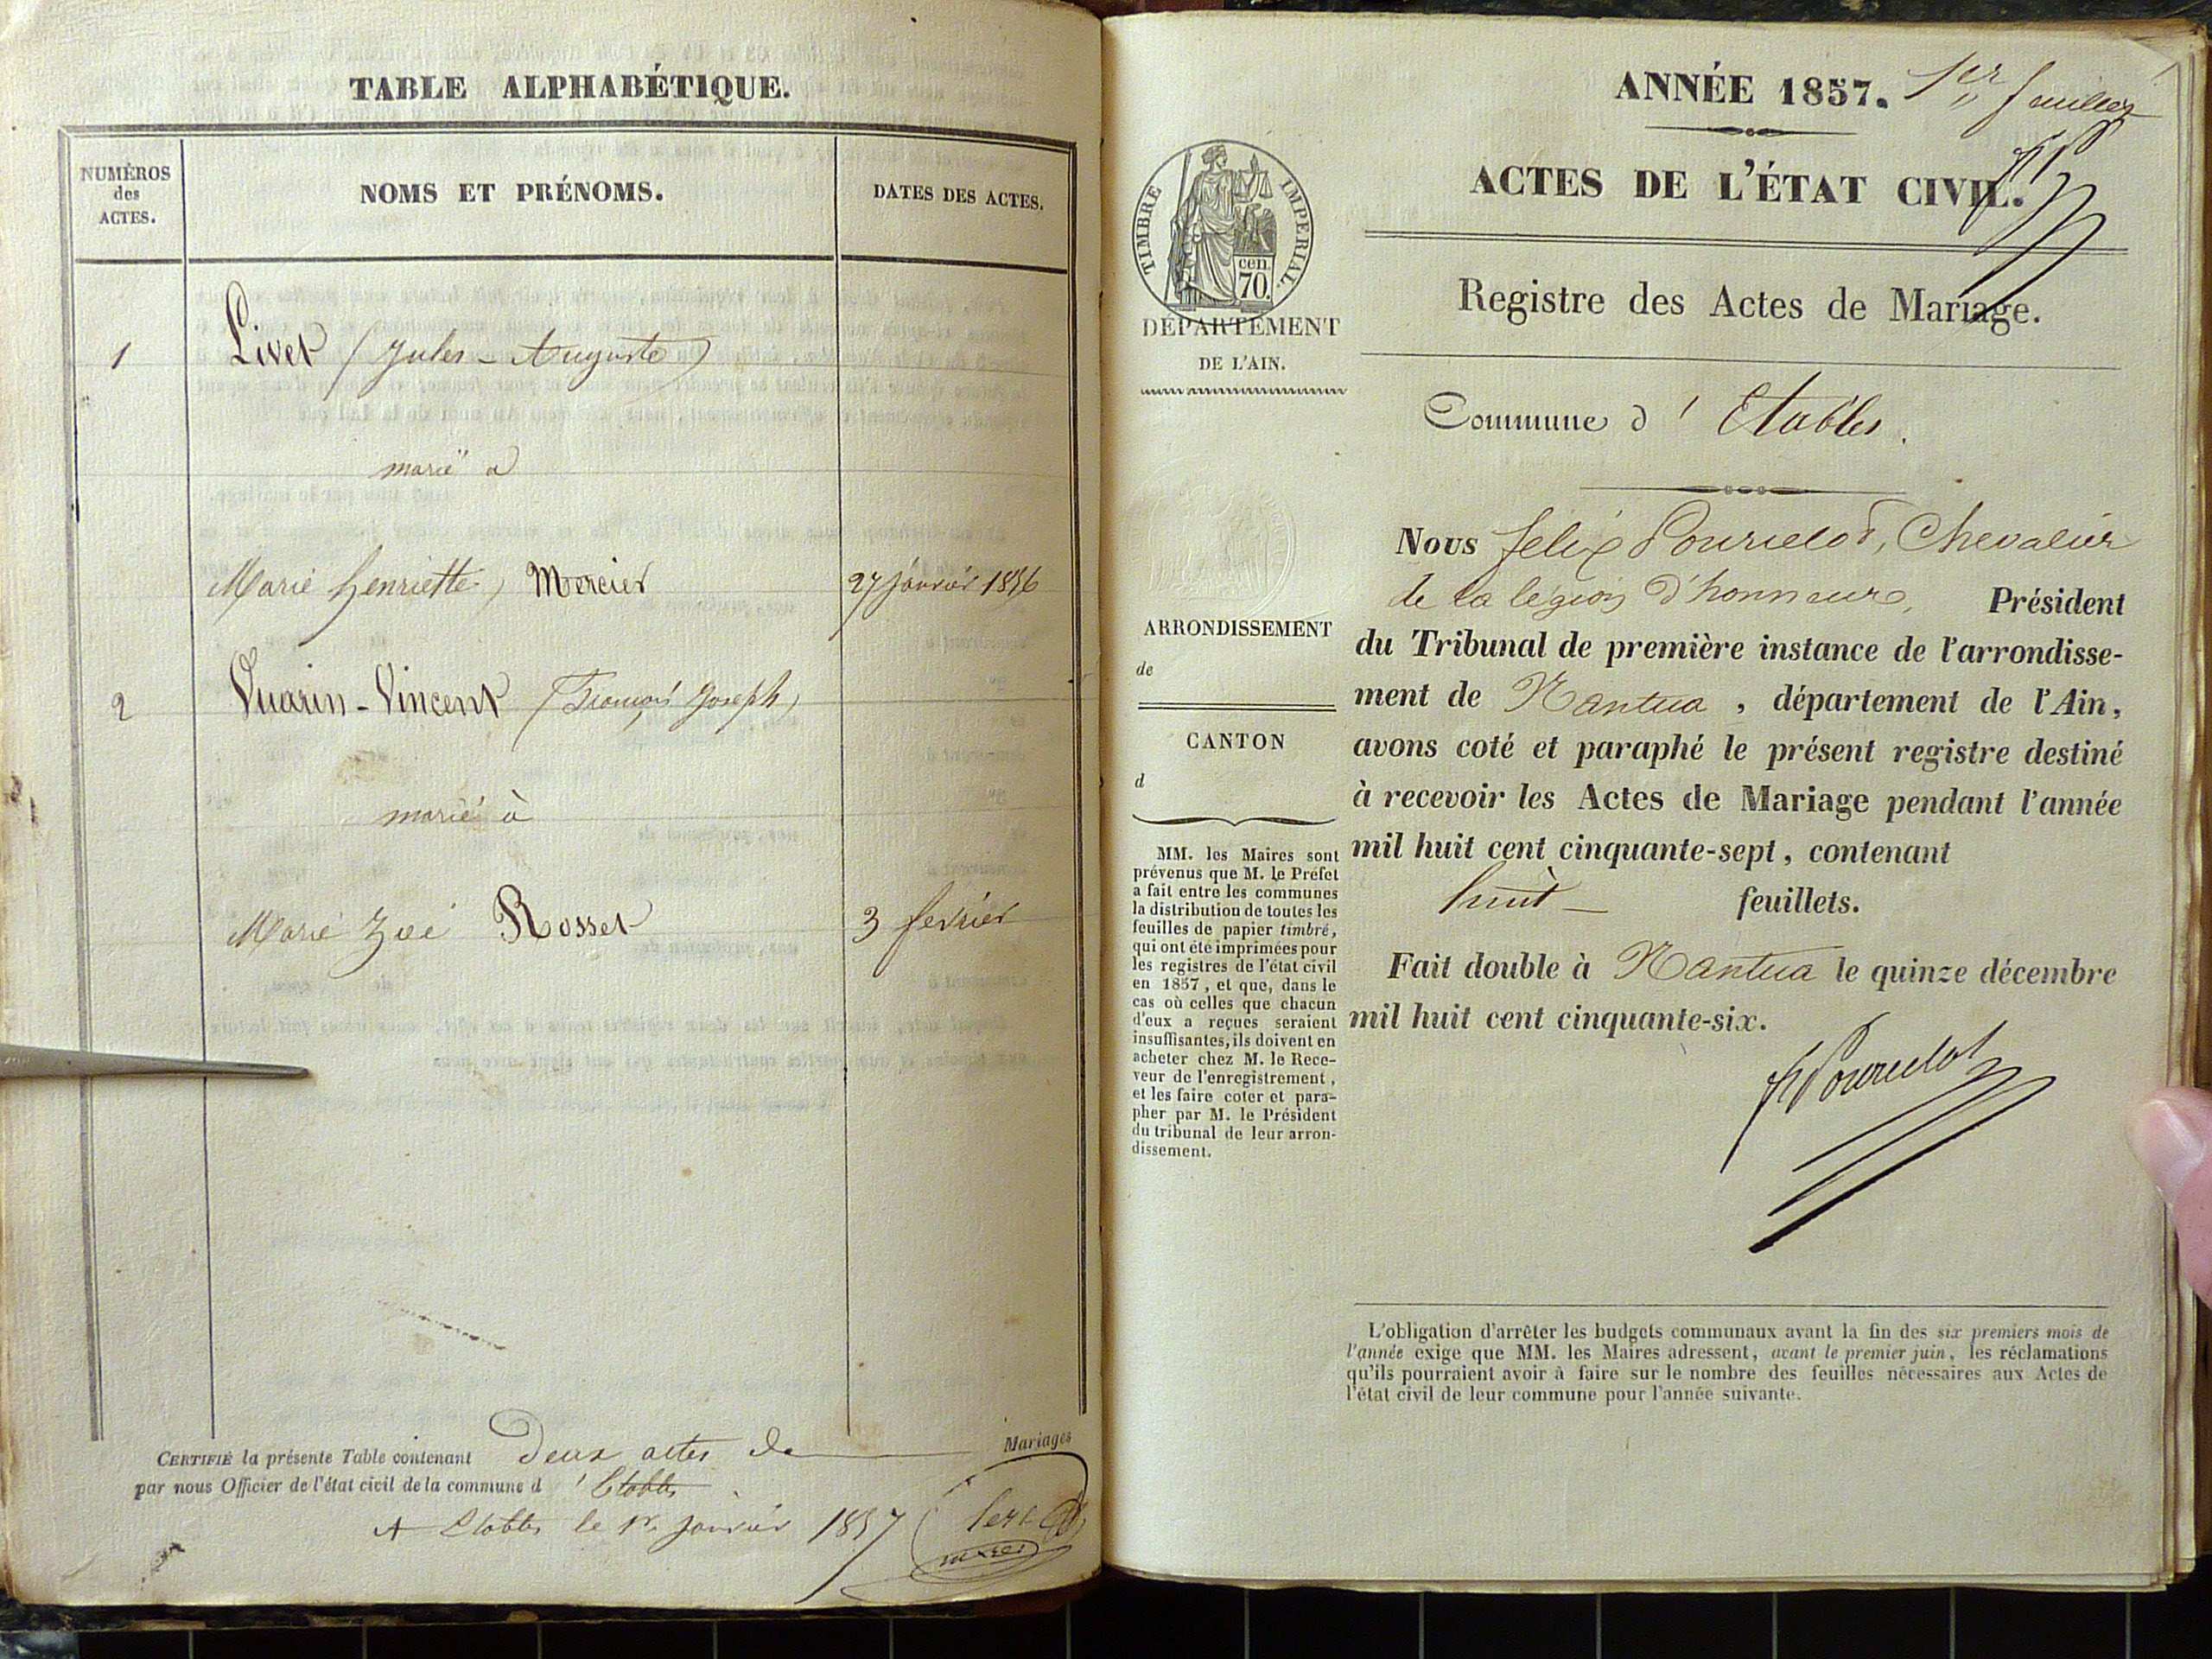 TABLE ALPHABÉTIQUE.
NUMÉROS
des
ACTES.
NOMS ET PRÉNOMS.
DATES DES ACTES.
1
Livet (Jules-Auguste)
marié a
Marie henriette) Mercier
27 janvier 1856
2
Vuarin-Vincent (François Joseph)
marié à
Marie Zoé Rosset
3 fevrier
CERTIFIÉ la présente Table contenant Deux actes de Mariages
par nous Officier de l'état civil de la commune d' Etables
A Etables le 1er. janvier 1857
maire
ANNÉE 1857.
1er feuillet
ACTES DE L'ÉTAT CIVIL.
TIMBRE IMPERIAL.
cen.
70.
DÉPARTEMENT
DE L'AIN.
ARRONDISSEMENT
de
CANTON
d
MM. les Maires sont
prévenus que M. le Préfet
a fait entre les communes
la distribution de toutes les
feuilles de papier timbré,
qui ont été imprimées pour
les registres de l'état civil
en 1857, et que, dans le
cas où celles que chacun
d'eux a reçues seraient
insuffisantes, ils doivent en
acheter chez M. le Rece-
veur de l'enregistrement,
et les faire coter et para-
pher par M. le Président
du tribunal de leur arron-
dissement.
Registre des Actes de Mariage.
Commune d' Etables.
Nous Felix Pourcelot, Chevalier
de la légion d'honneur, Président
du Tribunal de première instance de l'arrondisse-
ment de Nantua, département de l'Ain,
avons coté et paraphé le présent registre destiné
à recevoir les Actes de Mariage pendant l'année
mil huit cent cinquante-sept, contenant
huit feuillets.
Fait double à Nantua le quinze décembre
mil huit cent cinquante-six.
Pourcelot
L'obligation d'arrêter les budgets communaux avant la fin des six premiers mois de
l'année exige que MM. les Maires adressent, avant le premier juin, les réclamations
qu'ils pourraient avoir à faire sur le nombre des feuilles nécessaires aux Actes de
l'état civil de leur commune pour l'année suivante.